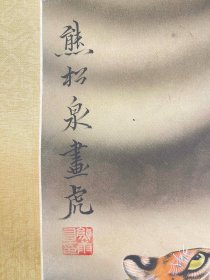 熊松泉畫虎